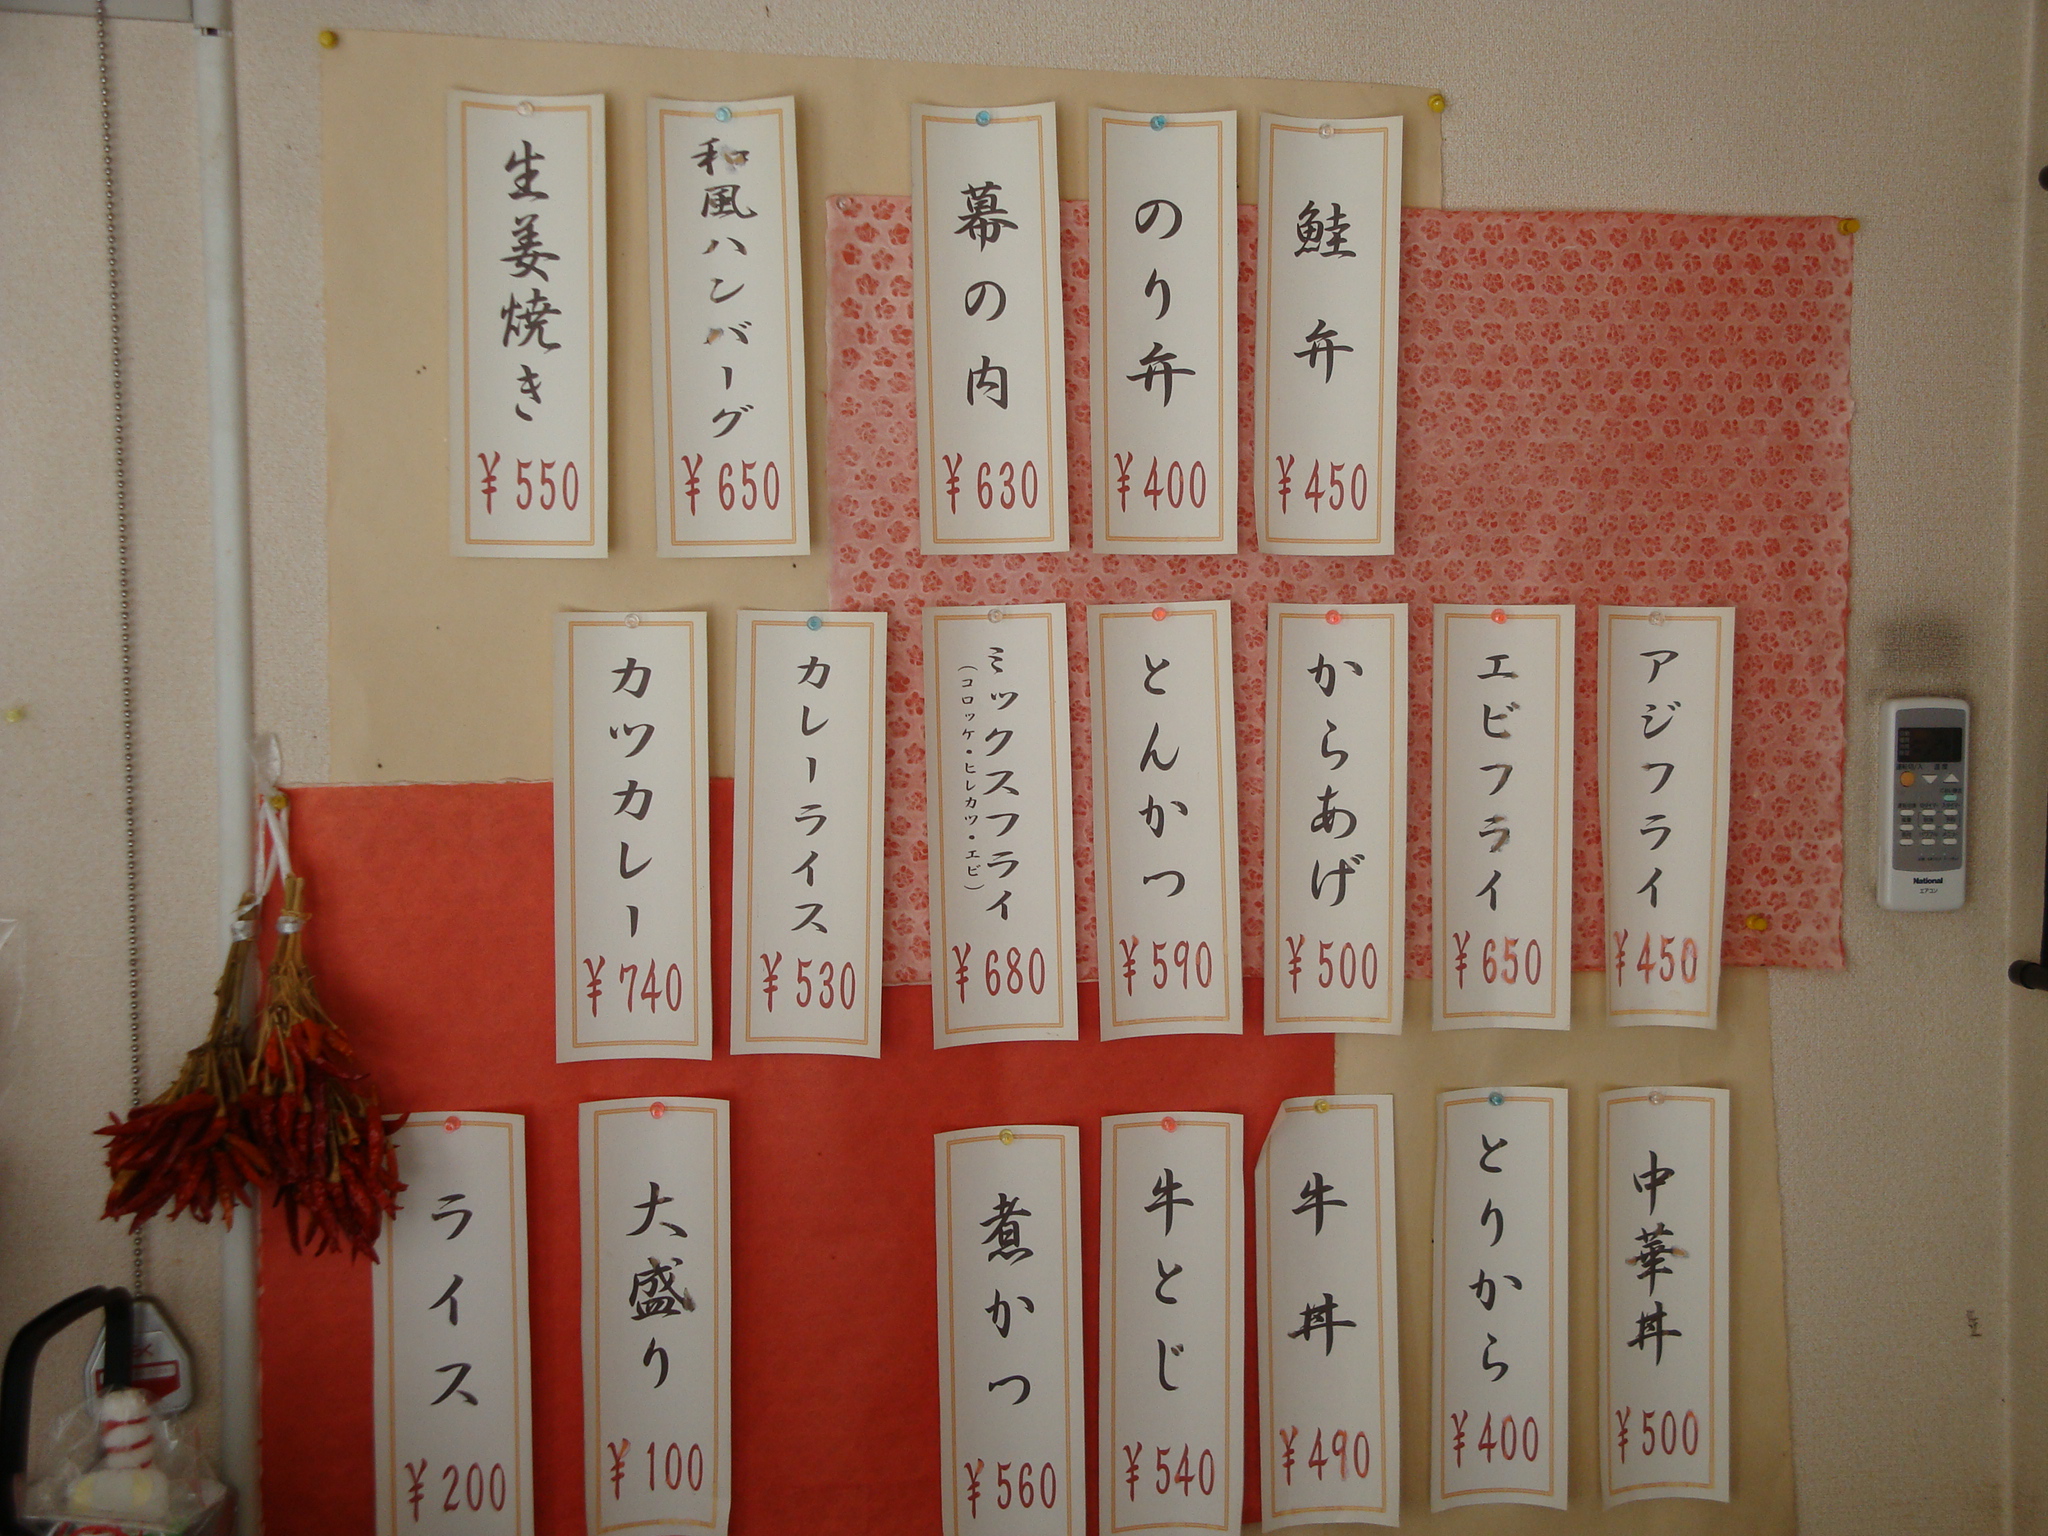 鮭弁
¥450
のり弁
¥400
幕の内
¥630
和風ハンバーグ
¥650
生姜焼き
¥550
アジフライ
¥450
エビフライ
¥650
からあげ
¥500
とんかつ
¥590
ミックスフライ
（コロッケ・ヒレカツ・エビ）
¥680
カレーライス
¥530
カツカレー
¥740
中華丼
¥500
とりから
¥400
牛丼
¥490
牛とじ
¥540
煮かつ
¥560
大盛り
¥100
ライス
¥200
National
エアコン